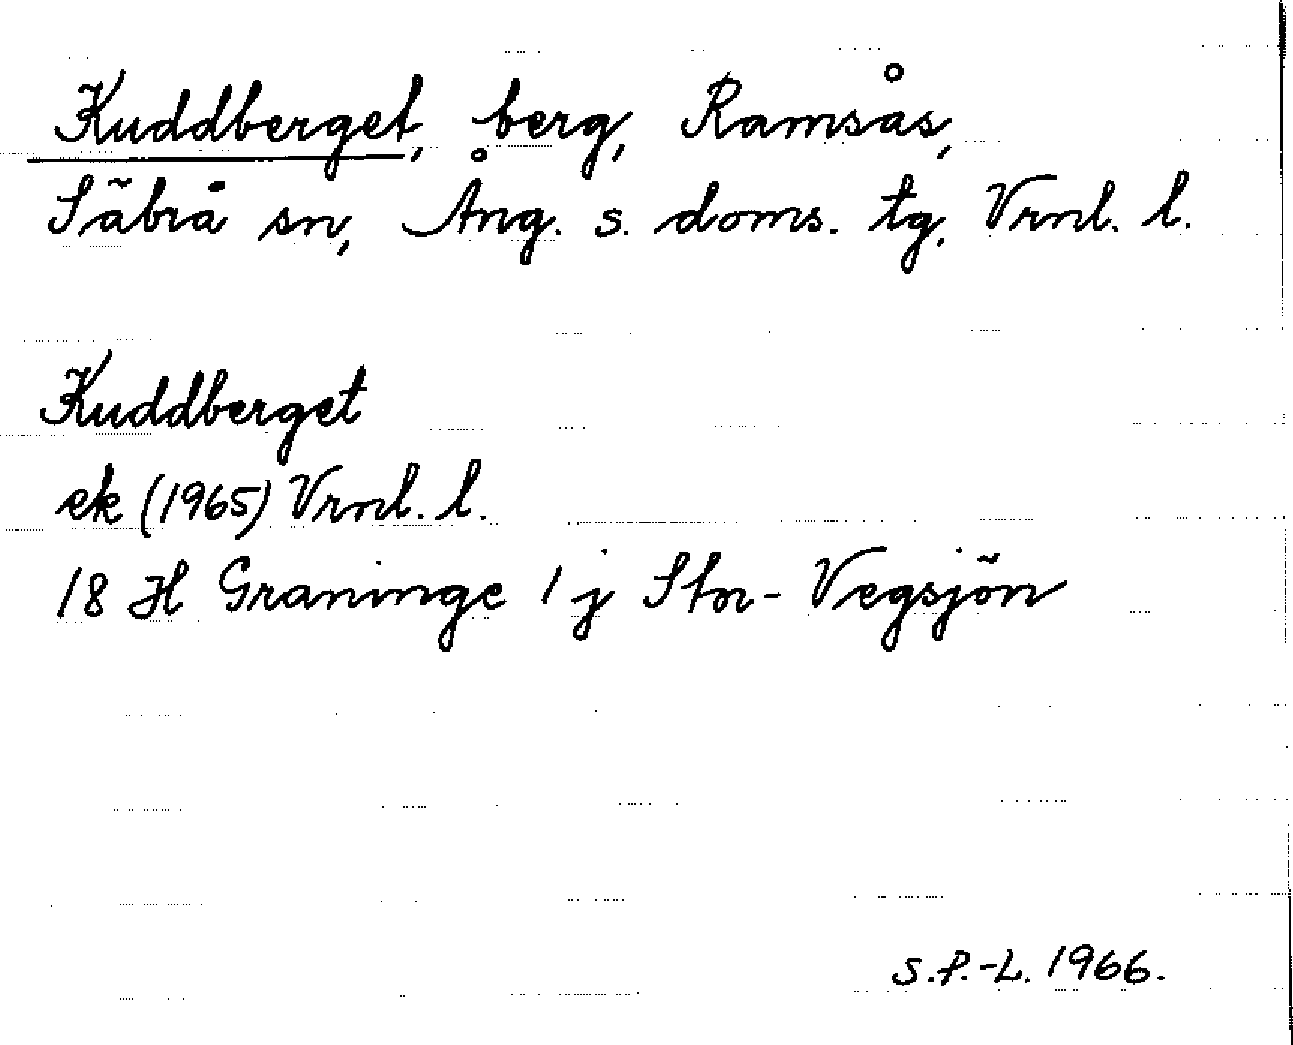 Kuddberget, berg, Ramsås,
Säbrå sn, Ång. s. doms. tg. Vrnl. l.
Kuddberget
ek (1965) Vrnl. l.
18 H Graninge 1 j Stor-Vegsjön
S.P.-L. 1966.